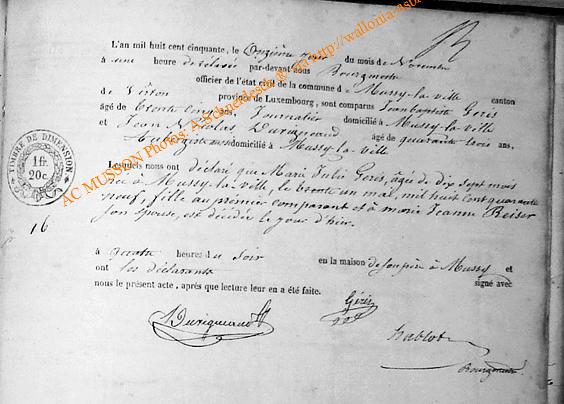 L'an mil huit cent cinquante, le Onzième jour du mois de Novembre
à une heure de relevée par-devant nous Bourgmestre
officier de l'état civil de la commune de Mussy-la-ville canton
de Virton province de Luxembourg, sont comparus Jean baptiste Gerés
âgé de trente cinq ans, Journalier domicilié à Mussy-la-ville
et Jean Nicolas âgé de quarante trois ans.
domicilié à Mussy-la-ville
Lesquels nous ont déclaré que Marie Julie Gerés, âgée de dix sept mois
née à Mussy-la-ville, le trente un mai, mil huit cent quarante
neuf, fille au premier comparant et à marie Jeanne Reiser
son épouse, est décédée le jour d'hier.
à quatre heures du Soir en la maison de son père à Mussy et
ont les déclarants signé avec
nous le présent acte, après que lecture leur en a été faite.
Gérés
Hablot
Bourgmestre
TIMBRE DE DIMENSION
1 fr.
20 c.
16
AC MUSSON Photos: A. Schneidesch via http://wallonia-asbl